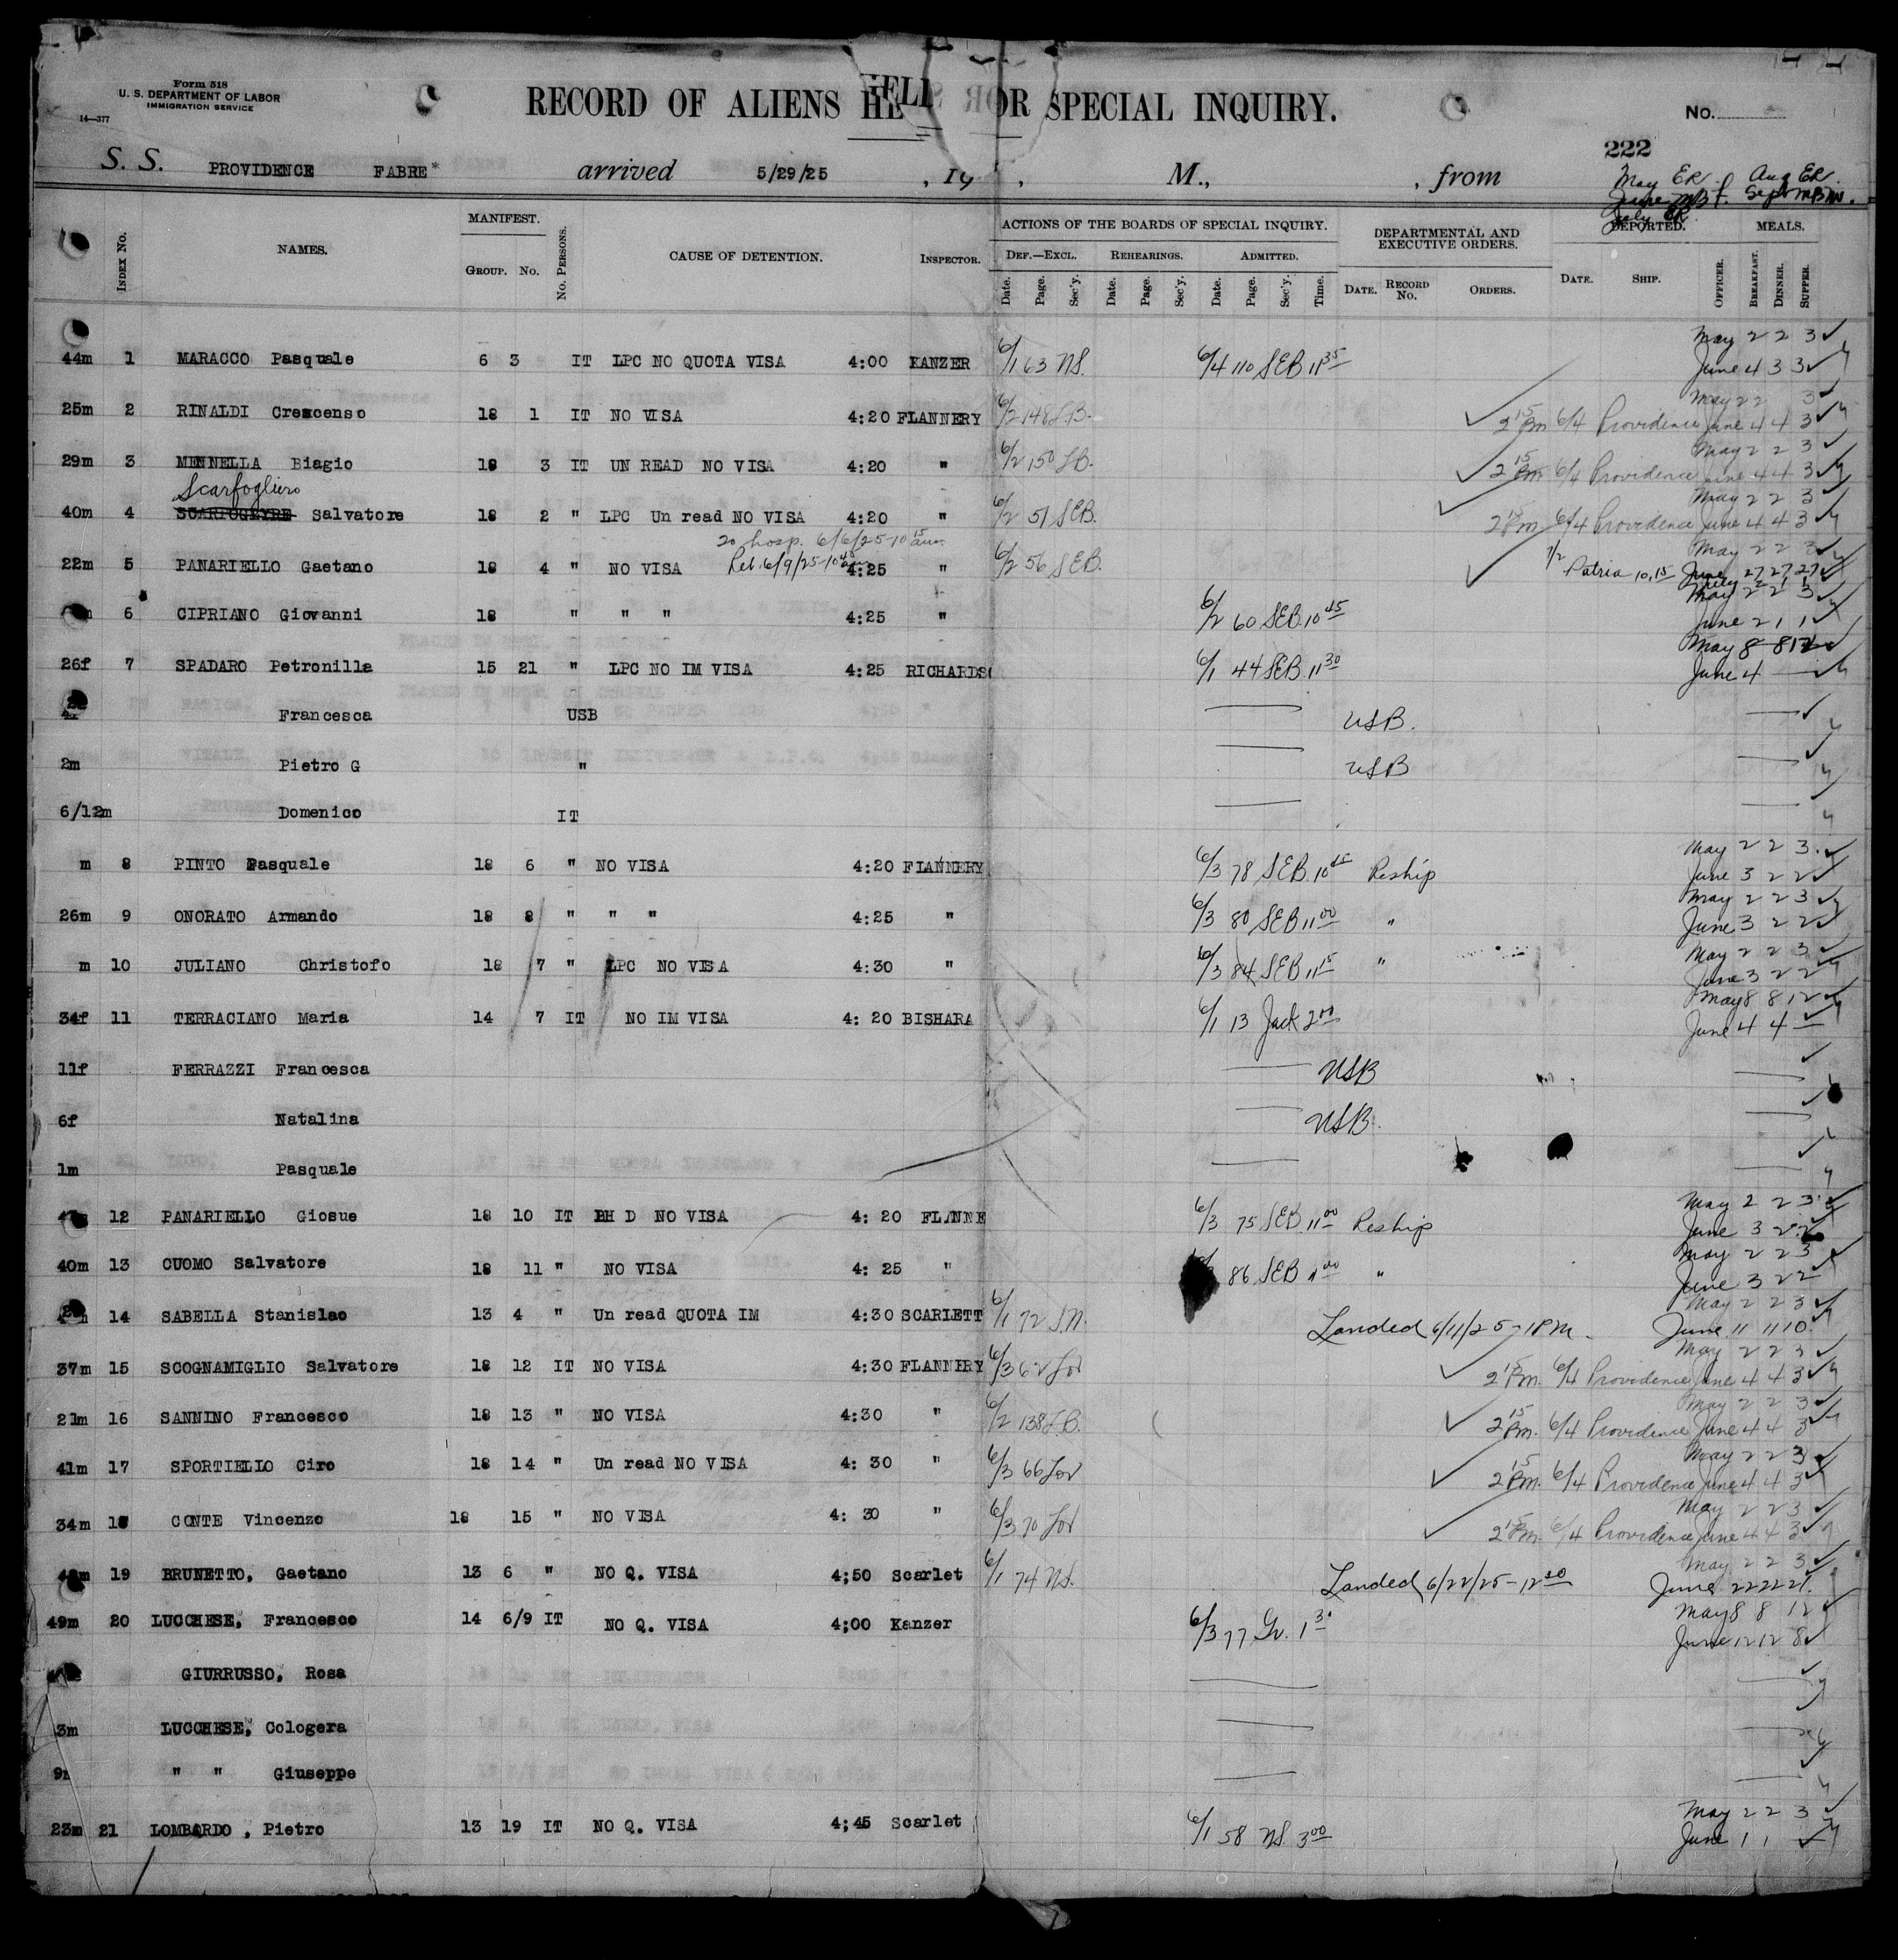 Form 518
U. S. DEPARTMENT OF LABOR
IMMIGRATION SERVICE
14—377
RECORD OF ALIENS HE OR SPECIAL INQUIRY.
No.
222
S. S. PROVIDENCE FABRE* arrived 5/29/25 , 19 , M., , from
May ER. Aug ER.
June Sept
July ER.
INDEX No. NAMES. MANIFEST. GROUP. No. No. PERSONS. CAUSE OF DETENTION. INSPECTOR. ACTIONS OF THE BOARDS OF SPECIAL INQUIRY. DEF.—EXCL. Date. Page. Sec'y. REHEARINGS. Date. Page. Sec'y. ADMITTED. Date. Page. Sec'y. Time. DEPARTMENTAL AND EXECUTIVE ORDERS. DATE. RECORD No. ORDERS. DEPORTED. DATE. SHIP. OFFICER. MEALS. BREAKFAST. DINNER. SUPPER.
May 2 2 3
44m 1 MARACCO Pasquale 6 3 IT LPC NO QUOTA VISA 4:00 KANZER 6/1 63 NS. 6/4 110 SEB 11 35 June 4 3 3
May 2 2 3
25m 2 RINALDI Crescenso 18 1 IT NO VISA 4:20 FLANNERY 6/2 148 LB. 2 15 Pm 6/4 Providence June 4 4 3
May 2 2 3
29m 3 MENNELLA Biagio 18 3 IT UN READ NO VISA 4:20 " 6/2 150 LB. 2 15 Pm 6/4 Providence June 4 4 3
Scarfogliero May 2 2 3
40m 4 SCARFOGEYRE Salvatore 18 2 " LPC Un read NO VISA 4:20 " 6/2 51 SEB. 2 15 Pm 6/4 Providence June 4 4 3
To hosp. 6/6/25-10 15 am. May 2 2 3
22m 5 PANARIELLO Gaetano 18 4 " NO VISA Ret. 6/9/25-10 45 4:25 " 6/2 56 SEB. 7/2 Patria 10,15 June 27 27 27
July 2 1 1
May 2 2 3
6 CIPRIANO Giovanni 18 " " " 4:25 " 6/2 60 SEB. 10 45 June 2 1 1
May 8 8 12
26f 7 SPADARO Petronilla 15 21 " LPC NO IM VISA 4:25 RICHARDS 6/1 44 SEB. 11 30 June 4
Francesca USB USB.
2m Pietro G " USB
6/12m Domenico IT
May 2 2 3
m 8 PINTO Pasquale 18 6 " NO VISA 4:20 FLANNERY 6/3 78 SEB. 10 45 Reship June 3 2 2
May 2 2 3
26m 9 ONORATO Armando 18 8 " " " 4:25 " 6/3 80 SEB 11 00 " June 3 2 2
May 2 2 3
m 10 JULIANO Christofo 18 7 " LPC NO VISA 4:30 " 6/3 84 SEB 11 15 " June 3 2 2
May 8 8 12
34f 11 TERRACIANO Maria 14 7 IT NO IM VISA 4: 20 BISHARA 6/1 13 Jack 2 00 June 4 4 —
11f FERRAZZI Francesca USB
6f Natalina USB.
1m Pasquale
May 2 2 3
12 PANARIELLO Giosue 18 10 IT PH D NO VISA 4: 20 FLANNE 6/3 75 SEB. 11 00 Reship June 3 2 2
May 2 2 3
40m 13 CUOMO Salvatore 18 11 " NO VISA 4: 25 " 86 SEB " June 3 2 2
May 2 2 3
14 SABELLA Stanislao 13 4 " Un read QUOTA IM 4:30 SCARLETT 6/1 72 S.N. Landed 6/11/25-1PM. June 11 11 10
May 2 2 3
37m 15 SCOGNAMIGLIO Salvatore 18 12 IT NO VISA 4:30 FLANNERY 6/3 62 Lov 2 15 Pm. 6/4 Providence June 4 4 3
May 2 2 3
21m 16 SANNINO Francesco 18 13 " NO VISA 4:30 " 6/2 138 LB. 2 15 Pm. 6/4 Providence June 4 4 3
May 2 2 3
41m 17 SPORTIELLO Ciro 18 14 " Un read NO VISA 4: 30 " 6/3 66 Lov 2 15 Pm. 6/4 Providence June 4 4 3
May 2 2 3
34m 18 CONTE Vincenzo 18 15 " NO VISA 4: 30 " 6/3 70 Lov 2 15 Pm. 6/4 Providence June 4 4 3
May 2 2 3
19 BRUNETTO, Gaetano 13 6 " NO Q. VISA 4;50 Scarlet 6/1 74 NS. Landed 6/22/25-12 30 June 22 22 21
May 8 8 12
49m 20 LUCCHESE, Francesco 14 6/9 IT NO Q. VISA 4;00 Kanzer 6/3 77 Gr. 1 30 June 12 12 8
GIURRUSSO, Rosa
3m LUCCHESE, Cologera
9m " " Giuseppe
May 2 2 3
23m 21 LOMBARDO , Pietro 13 19 IT NO Q. VISA 4;45 Scarlet 6/1 58 NS. 3 00 June 1 1